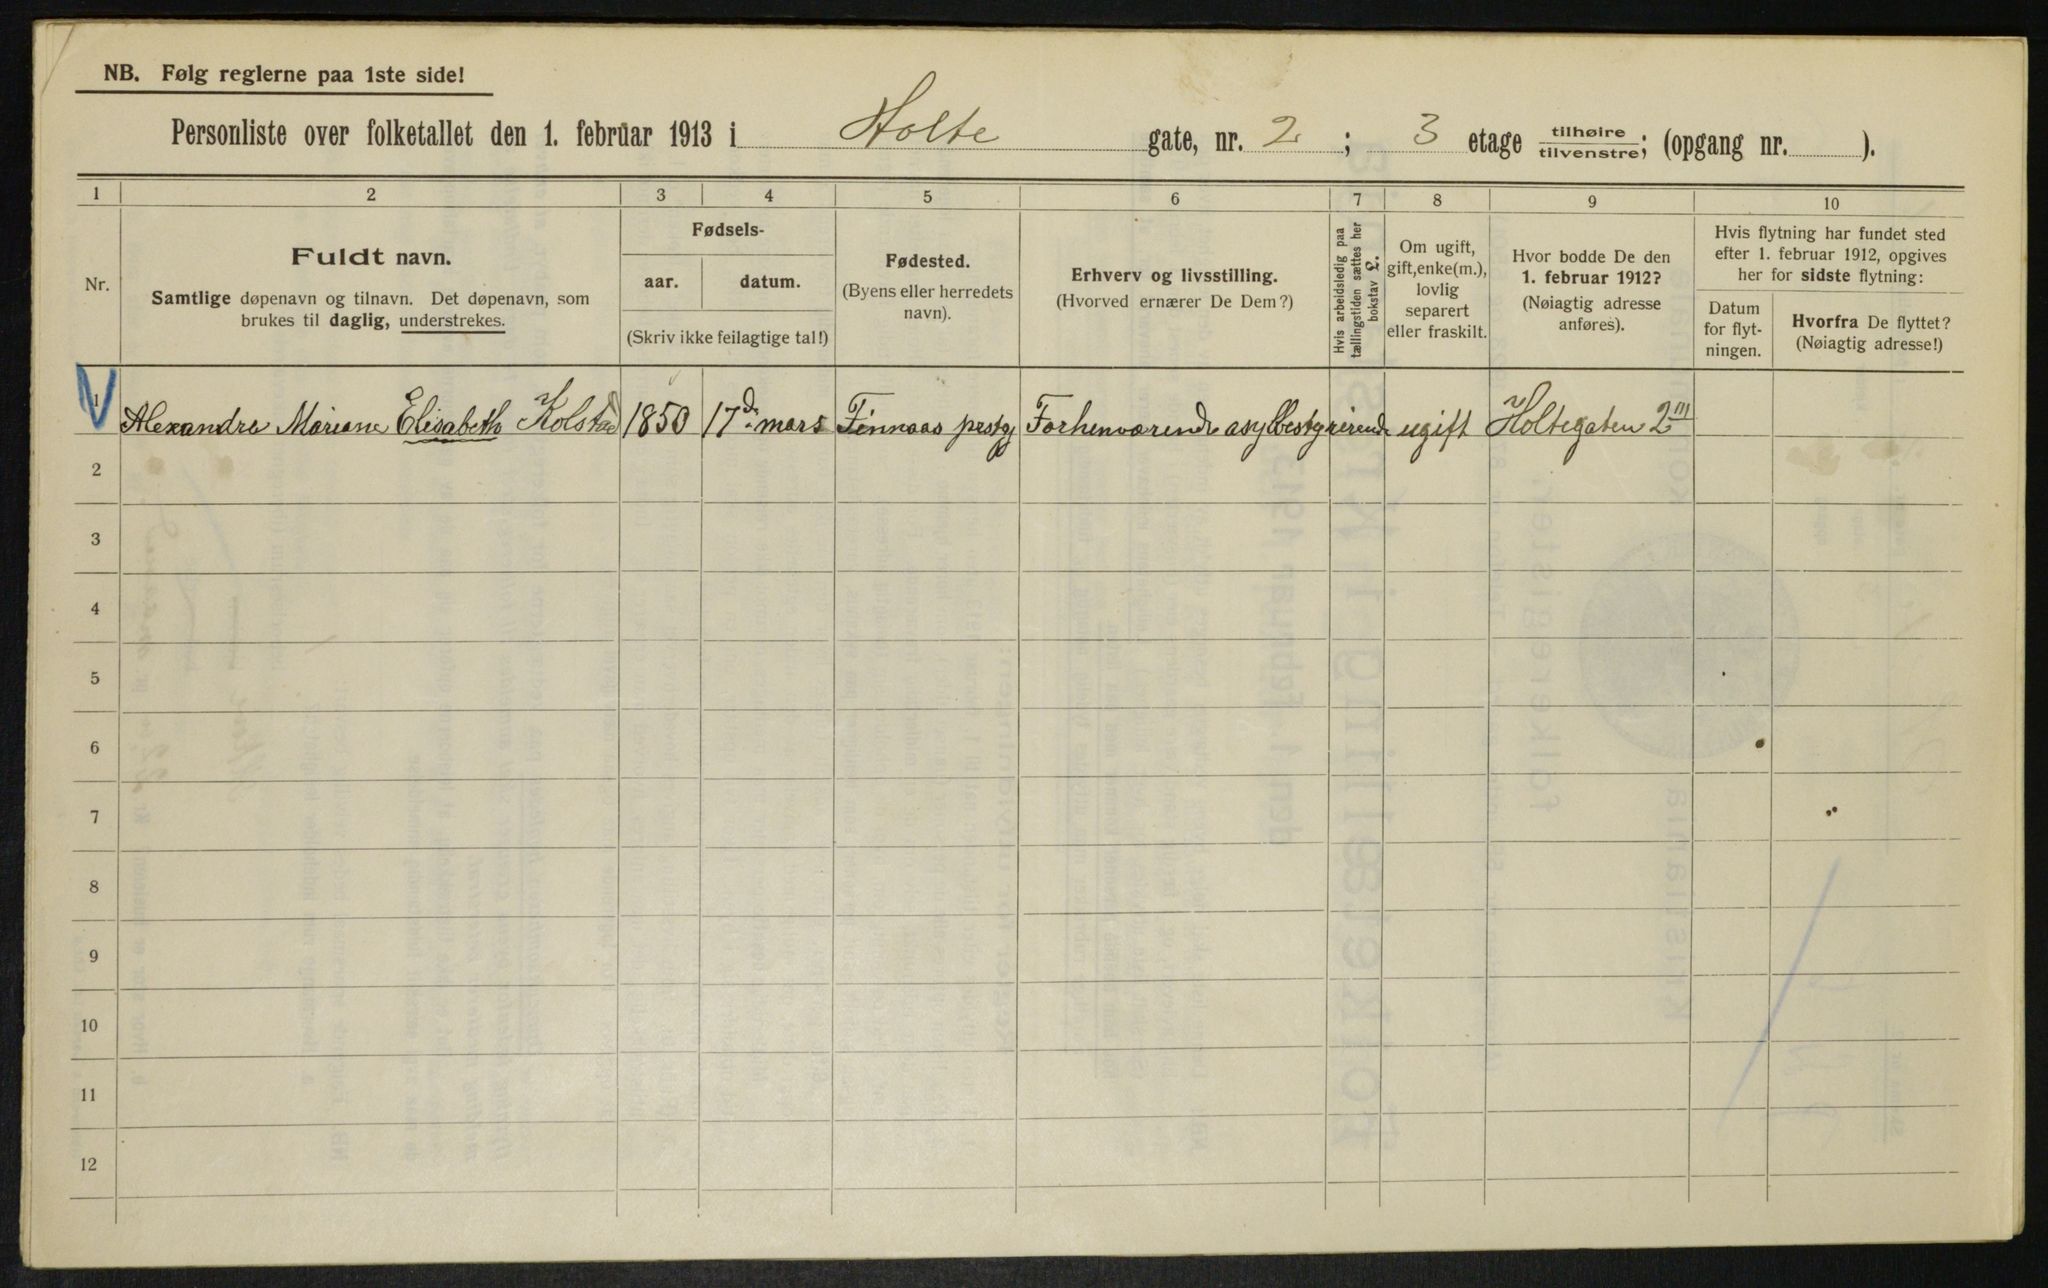 NB. Følg reglerne paa 1ste side!
Personliste over folketallet den 1. februar 1913 i Holte gate, nr. 2 ; 3 etage tilhøire/tilvenstre; (opgang nr. ).
1 2 3 4 5 6 7 8 9 10
Nr.
Fuldt navn.
Samtlige døpenavn og tilnavn. Det døpenavn, som
brukes til daglig, understrekes.
Fødsels-
aar. datum.
(Skriv ikke feilagtige tal!)
Fødested.
(Byens eller herredets
navn).
Erhverv og livsstilling.
(Hvorved ernærer De Dem?)
Hvis arbeidsledig paa
tællingstiden sættes her
bokstav L.
Om ugift,
gift, enke(m.),
lovlig
separert
eller fraskilt.
Hvor bodde De den
1. februar 1912?
(Nøiagtig adresse
anføres).
Hvis flytning har fundet sted
efter 1. februar 1912, opgives
her for sidste flytning:
Datum
for flyt-
ningen.
Hvorfra De flyttet?
(Nøiagtig adresse!)
1 Alexandra Mariane Elisabeth Kolstad 1850 17de mars Finnaas prestgj Forhenværende asylbestyrerinde ugift Holtegaten 2 III
2
3
4
5
6
7
8
9
10
11
12